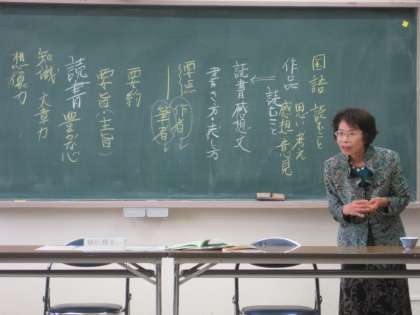 国語 読むこと
思い・考え
作品 感想・意見
読むこと
読書感想文
書き方・表し方
要点
作者
筆者
要約
要旨・主旨
読書 豊かな心
知識 文章力
想像力